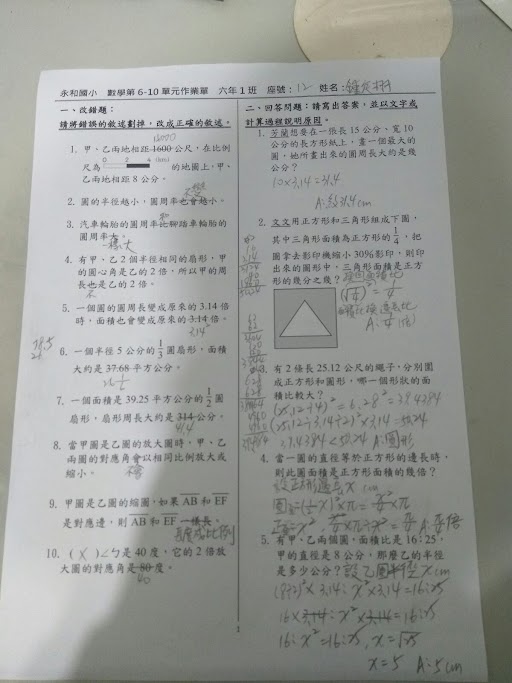 永和國小 數學第 6-10 單元作業單 六年 1 班 座號：12 姓名：
一、改錯題：
請將錯誤的敘述劃掉，改成正確的敘述。
1. 甲、乙兩地相距 1600 公尺，在比例
尺為 0 2 4 (km) 的地圖上，甲、
乙兩地相距 8 公分。
2. 圓的半徑越小，圓周率也會越小。
3. 汽車輪胎的圓周率比腳踏車輪胎的
圓周率大。
一樣大
4. 有甲、乙 2 個半徑相同的扇形，甲
的圓心角是乙的 2 倍，所以甲的周
長也是乙的 2 倍。
不
5. 一個圓的圓周長變成原來的 3.14 倍
時，面積也會變成原來的 3.14 倍。
3.14²
6. 一個半徑 5 公分的 1/3 圓扇形，面積
大約是 37.68 平方公分。
7. 一個面積是 39.25 平方公分的 1/2 圓
扇形，扇形周長大約是 314 公分。
8. 當甲圖是乙圖的放大圖時，甲、乙
兩圖的對應角會以相同比例放大或
縮小。
不會
9. 甲圖是乙圖的縮圖，如果 AB 和 EF
是對應邊，則 AB 和 EF 一樣長。
長度成比例
10. (×) ∠ㄅ是 40 度，它的 2 倍放
大圖的對應角是 80 度。
40
二、回答問題：請寫出答案，並以文字或
計算過程說明原因。
1. 芳蘭想要在一張長 15 公分、寬 10
公分的長方形紙上，畫一個最大的
圓，她所畫出來的圓周長大約是幾
公分？
10×3.14=31.4
A:約31.4cm
2. 文文用正方形和三角形組成下圖，
其中三角形面積為正方形的 1/4，把
圖拿去影印機縮小 30%影印，印
出來的圖形中，三角形面積是正方
形的幾分之幾？
A: 1/4 (倍)
3. 有 2 條長 25.12 公尺的繩子，分別圍
成正方形和圓形，哪一個形狀的面
積比較大？
(25.12÷4)²=6.28²=39.4384
(25.12÷3.14÷2)²×3.14=50.24
39.4384<50.24 A:圓形
4. 當一個圓的直徑等於正方形的邊長時，
則此圓面積是正方形面積的幾倍？
設正方形邊長 x cm
5. 有甲、乙兩個圓，面積比是 16:25，
甲的直徑是 8 公分，那麼乙的半徑
是多少公分？設乙圓半徑 x cm
(8÷2)²×3.14:x²×3.14=16:25
16×3.14:x²×3.14=16:25
16:x²=16:25, x=√25
x=5 A:5cm